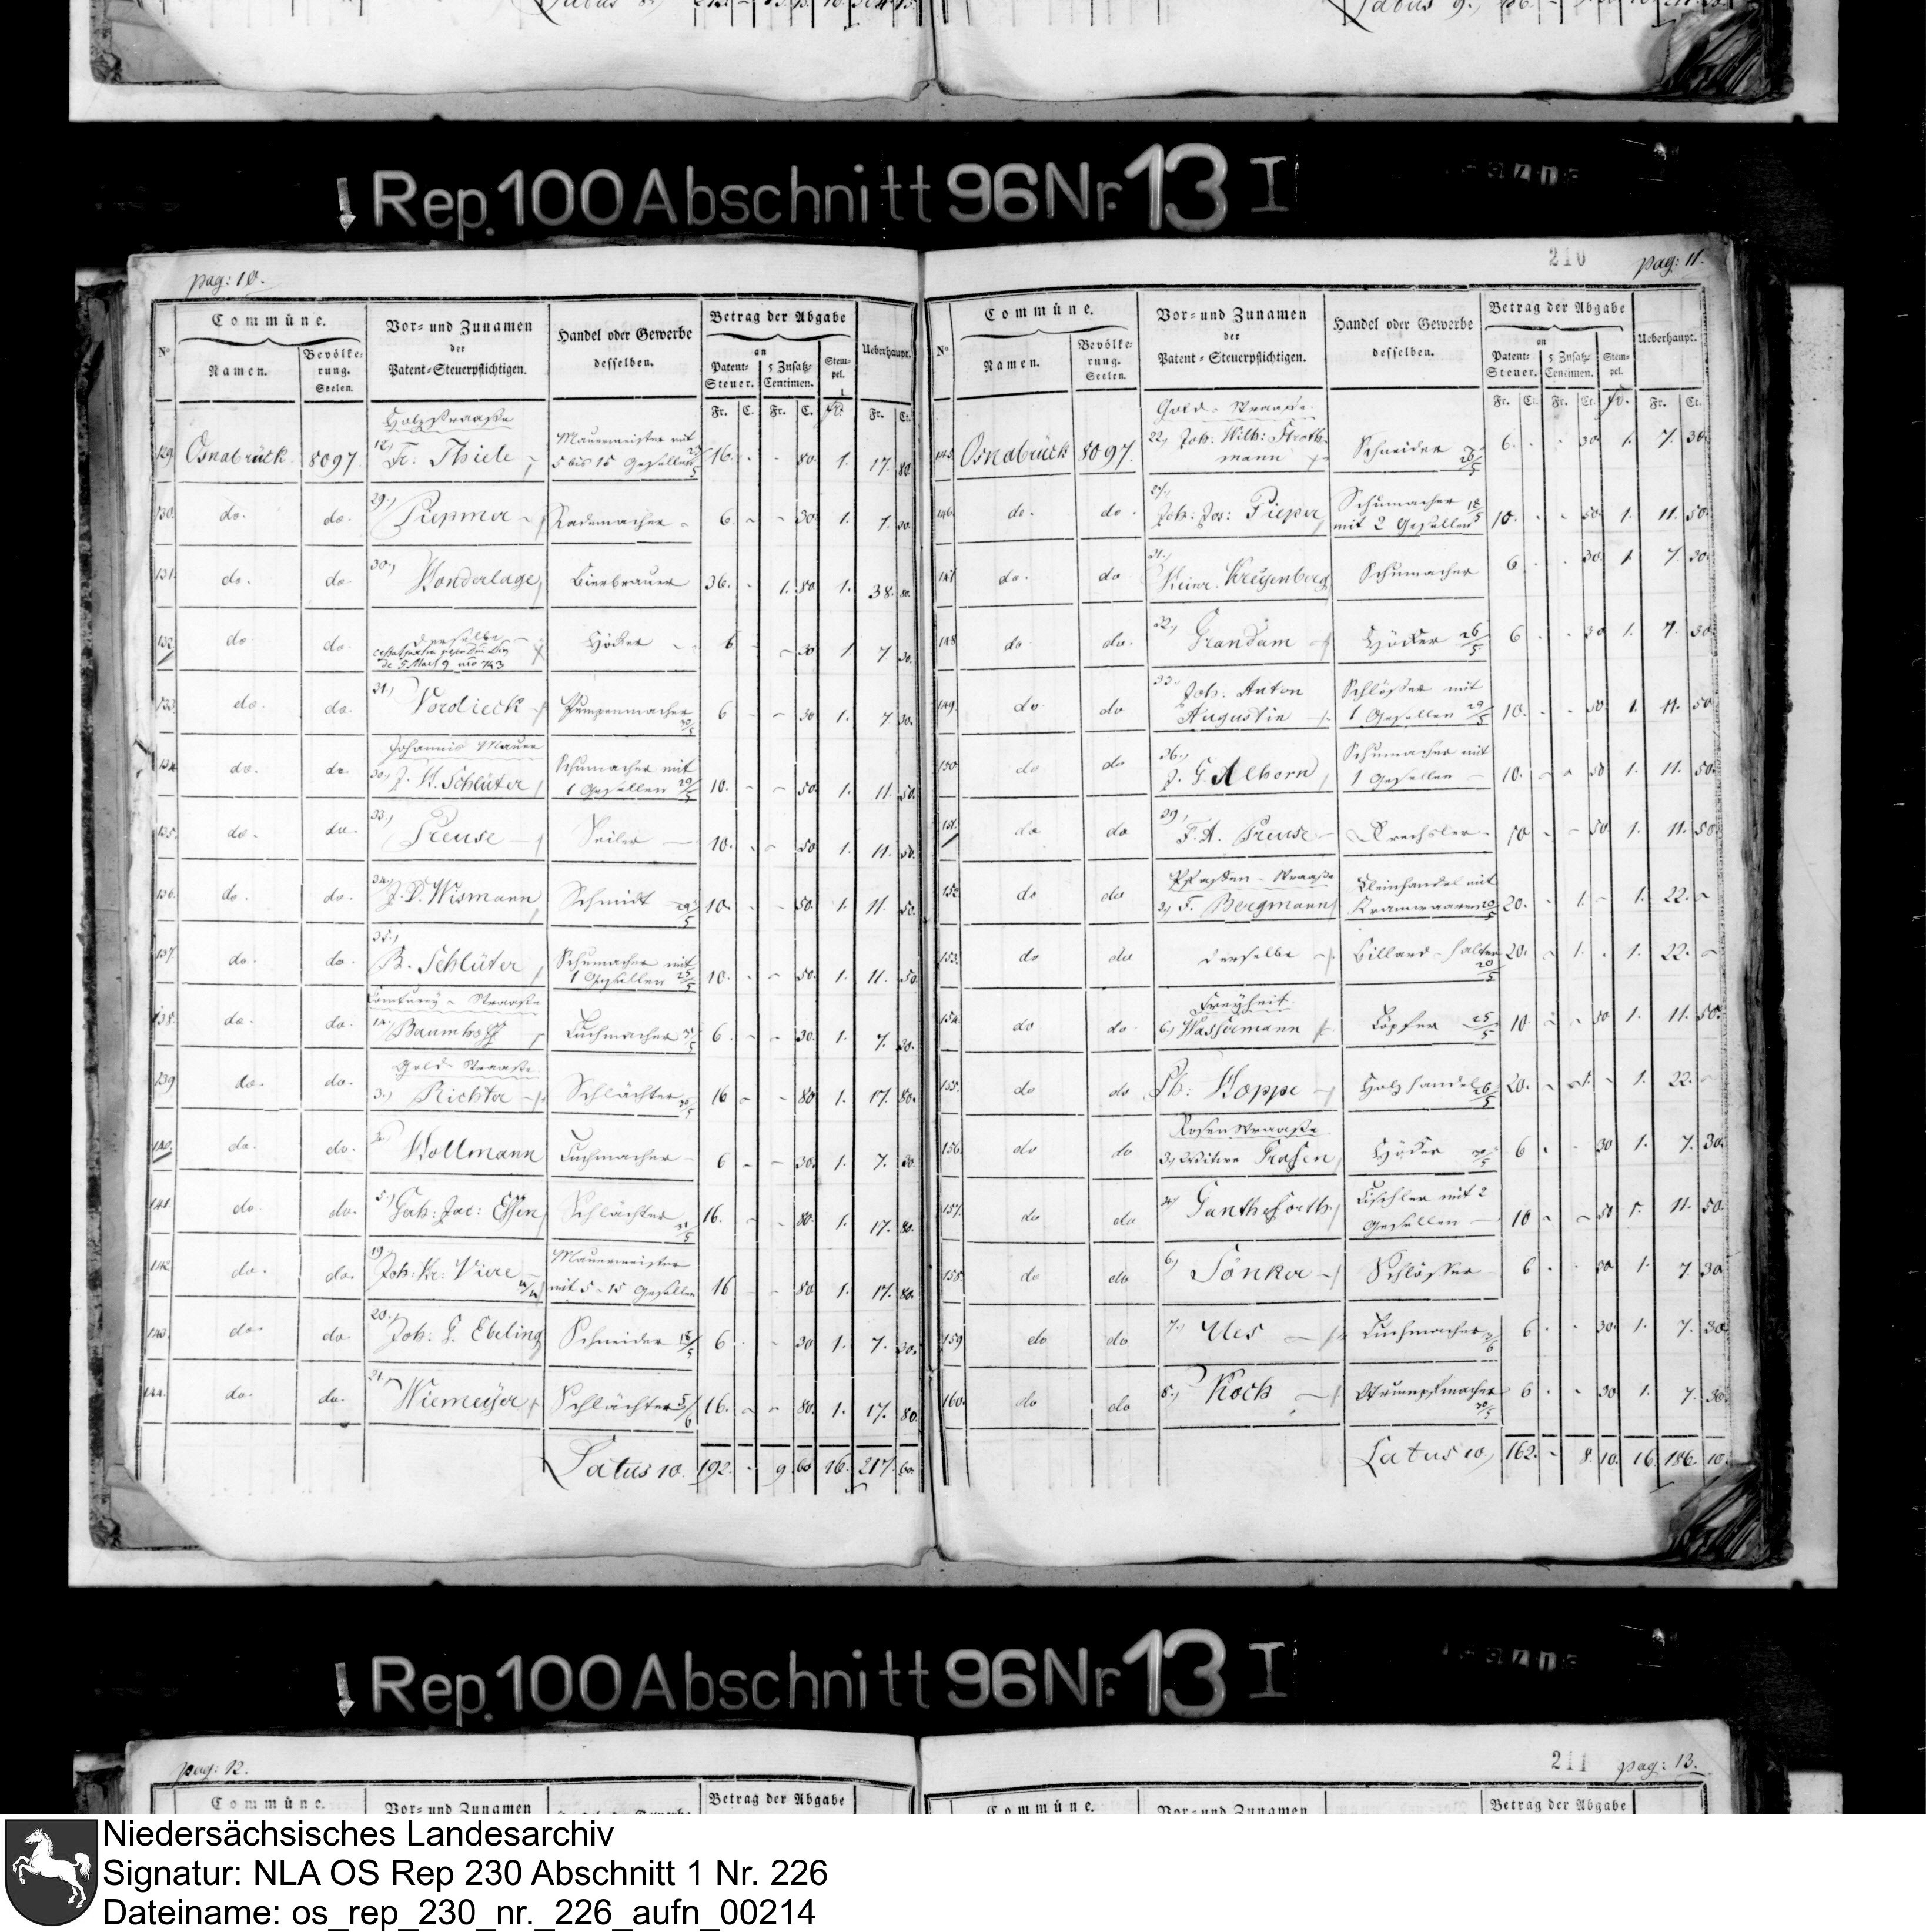 Latus 8.,
Latus 9.,
Rep. 100 Abschnitt 96 Nr. 13 I
pag: 10.
No
Commüne.
Namen.
Bevölke-
rung.
Seelen.
Vor- und Zunamen
der
Patent-Steuerpflichtigen.
Handel oder Gewerbe
desselben.
Betrag der Abgabe
an
Patent-
Steuer.
5 Zusatz-
Centimen.
Stem-
pel.
Ueberhaupt.
Fr. C. Fr. C. fr. Fr. Ct.
Holzstraasse
129. Osnabrück 8097. 12,) Fr: Thiele Mauermeister mit
5 bis 15 Gesellen 16. - - 80. 1. 17. 80.
130. do. do. 29.) Piepmer Rademacher 6. - - 30. 1. 7. 30.
131. do. do. 30.) Wonderlage Bierbrauer 36. - 1. 80. 1. 38. 80.
132. do do. derselbe Höcker 6 - - 30 1. 7 30.
133. do. do. 31,) Vordieck Pumpenmacher 6 - - 30 1. 7 30.
Johannis Mauer
134. do. do. 30,) J. H. Schlüter Schumacher mit
1 Gesellen 10. - - 50. 1. 11. 50.
135. do. do. 33,) Preuse Seiler 10. - - 50 1. 11. 50.
136. do. do. 34,) J. D. Wismann Schmidt 10. - - 50. 1. 11. 50.
137. do. do. 35.) B. Schlüter Schumacher mit
1 Gesellen 25/5 10. - - 50. 1. 11. 50.
Comturey - Straasse
138. do. do. 14.) Baumhoff Tuchmacher 6. - - 30. 1. 7. 30.
Gold - Straasse.
139 do. do. 3.) Richter Schlächter 16 - - 80 1. 17. 80.
140. do. do. Wollmann Tuchmacher 6 - - 30. 1. 7. 30
141. do. do. 5.) Joh: Jac: Essen Schlächter 16. - - 80. 1. 17. 80.
142. do. do. 19.) Joh: Kr: Viere Mauermeister
mit 5 - 15 Gesellen 16 - - 80. 1. 17. 80.
143. do. do. 20.) Joh: G. Ebeling Schneider 18/5 6 - - 30 1. 7. 30.
144. do. do. 21.) Wiemeyer Schlächter 5/6 16. - - 80. 1. 17. 80.
Latus 10. 192. - 9. 60 16. 217. 60.
210
pag: 11.
No
Commüne.
Namen.
Bevölke-
rung.
Seelen.
Vor- und Zunamen
der
Patent-Steuerpflichtigen.
Handel oder Gewerbe
desselben.
Betrag der Abgabe
an
Patent-
Steuer.
5 Zusatz-
Centimen.
Stem-
pel.
Ueberhaupt.
Fr. Ct. Fr. Ct. fr. Fr. Ct.
Gold - Straasse.
145. Osnabrück 8097. 22,) Joh: Wilh: Stroth-
mann Schneider 6. - - 30. 1. 7. 30.
146. do. do. 27,) Joh: Jos: Pieper Schumacher
mit 2 Gesellen 18/5 10. - - 50. 1. 11. 50.
147 do. do. 31.) Heinr. Kreyenberg Schumacher 6 - - 30. 1. 7. 30.
148 do. do. 32.) Grandam Höcker 26/5 6 - - 30 1. 7. 30
149. do. do 33. Joh: Anton
Augustin Schlösser mit
1 Gesellen 29/5 10. - - 50 1. 11. 50
150 do do 36.) J. G. Alhorn Schumacher mit
1 Gesellen 10. - - 50 1. 11. 50.
151. do do 39,) F. A. Preuse Drechsler 10 - - 50. 1. 11. 50.
Pfaffen - Straasse
152. do do 3,) F. Bergmann Kleinhandel mit
Kramwaaren 20. - 1. - 1. 22. -
153. do do derselbe Billard-halter 20. - 1. - 1. 22. -
Freyheit.
154. do do 6,) Wassermann Töpfer 25/5 10. - - 50 1. 11. 50.
155. do do Ph: Hoppe Holzhandel 26/5 20. - 1. - 1. 22. -
Rosen Straasse.
156. do do 3,) Witwe Frasen Höcker 6 - - 30 1. 7. 30.
157. do do Ganthoforth Tischler mit 2
Gesellen 10 - - 50 1. 11. 50.
158. do do 6,) Tönker Schlösser 6 - - 30 1. 7. 30
159 do do 7.) Ues Tuchmacher 6 - - 30. 1. 7. 30
160. do do 8,) Koch Strumpfmacher 6 - - 30 1. 7. 30.
Latus 10., 162. - 8. 10. 16. 186. 10.
Rep. 100 Abschnitt 96 Nr. 13 I
pag: 12.
Commüne.
Vor- und Zunamen
Betrag der Abgabe
211
pag: 13.
Commüne.
Vor- und Zunamen
Betrag der Abgabe
Niedersächsisches Landesarchiv
Signatur: NLA OS Rep 230 Abschnitt 1 Nr. 226
Dateiname: os_rep_230_nr._226_aufn_00214